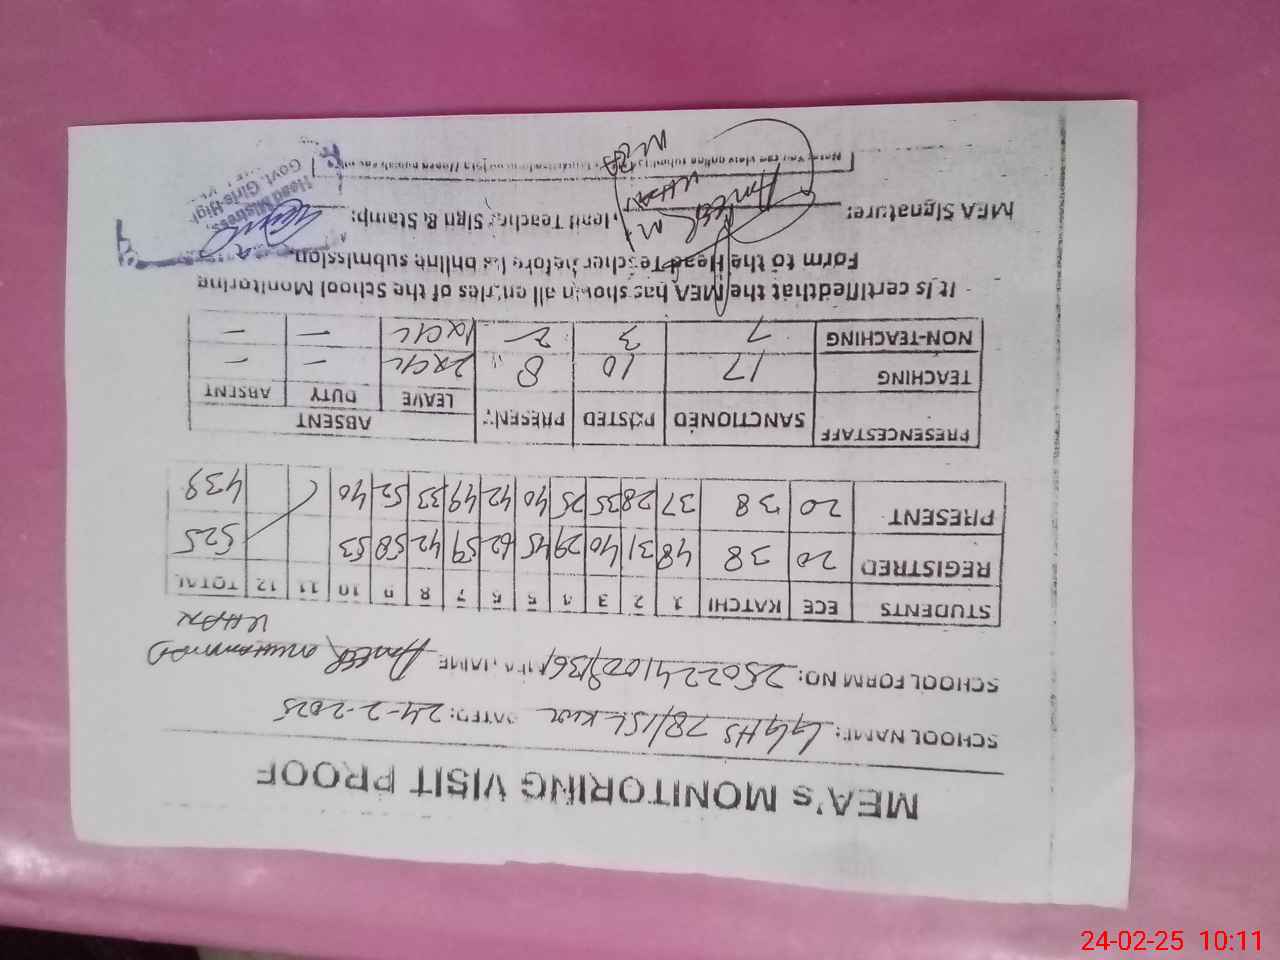 MEA's MONITORING VISIT PROOF
SCHOOL NAME: GGHS 78/15L Kwl DATED: 24-2-2025
SCHOOL FORM NO: MEA NAME AMEER MUHAMMAD
KHAN
STUDENTS ECE KATCHI 1 2 3 4 5 6 7 8 9 10 11 12 TOTAL
REGISTRED 20 38 48 31 40 29 45 62 59 42 58 53 525
PRESENT 20 38 37 28 35 25 40 42 49 33 52 40 439
PRESENCESTAFF SANCTIONED POSTED PRESENT ABSENT
LEAVE DUTY ABSENT
TEACHING 17 10 8 2xC/L – –
NON-TEACHING 7 3 2 1xC/L – –
It is certified that the MEA has shown all entries of the School Monitoring
Form to the Head Teacher before its online submission
MEA Signature: Head Teacher Sign & Stamp:
AMEER M.
KHAN
MEA
Head Mistress
Govt. Girls High
Note: You can view online school
24-02-25 10:11